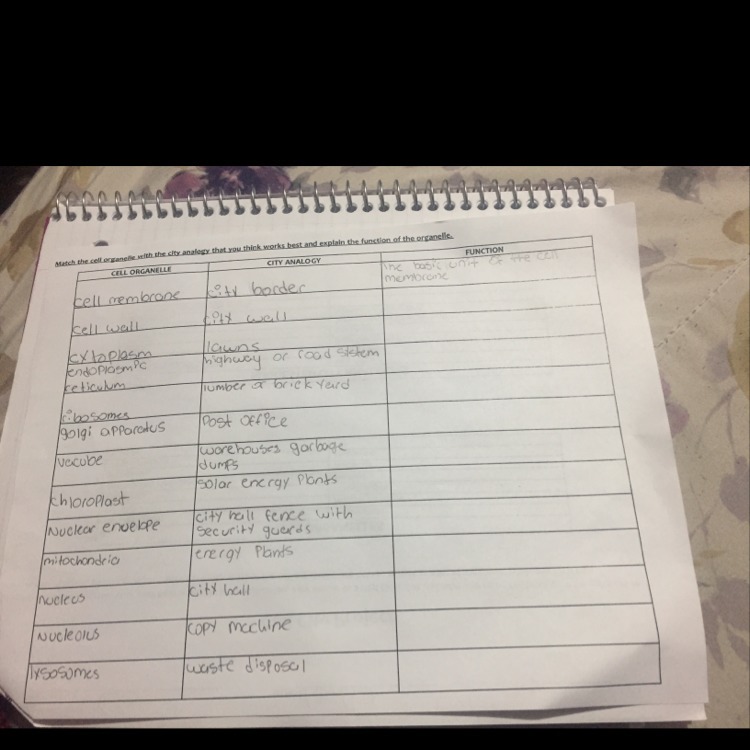 Match the cell organelle with the city analogy that you think works best and explain the function of the organelle.
CELL ORGANELLE CITY ANALOGY FUNCTION
cell membrane city border the basic unit of the cell
membrane
cell wall city wall
cytoplasm lawns
endoplasmic highway or road sistem
reticulum lumber a brick yard
ribosomes
golgi apparatus Post office
vacube warehouses garbage
dumps
chloroplast solar energy Plants
Nuclear envelope city hall fence with
security guards
mitochondria energy Plants
nucleus city hall
Nucleolus copy machine
lysosomes waste disposal